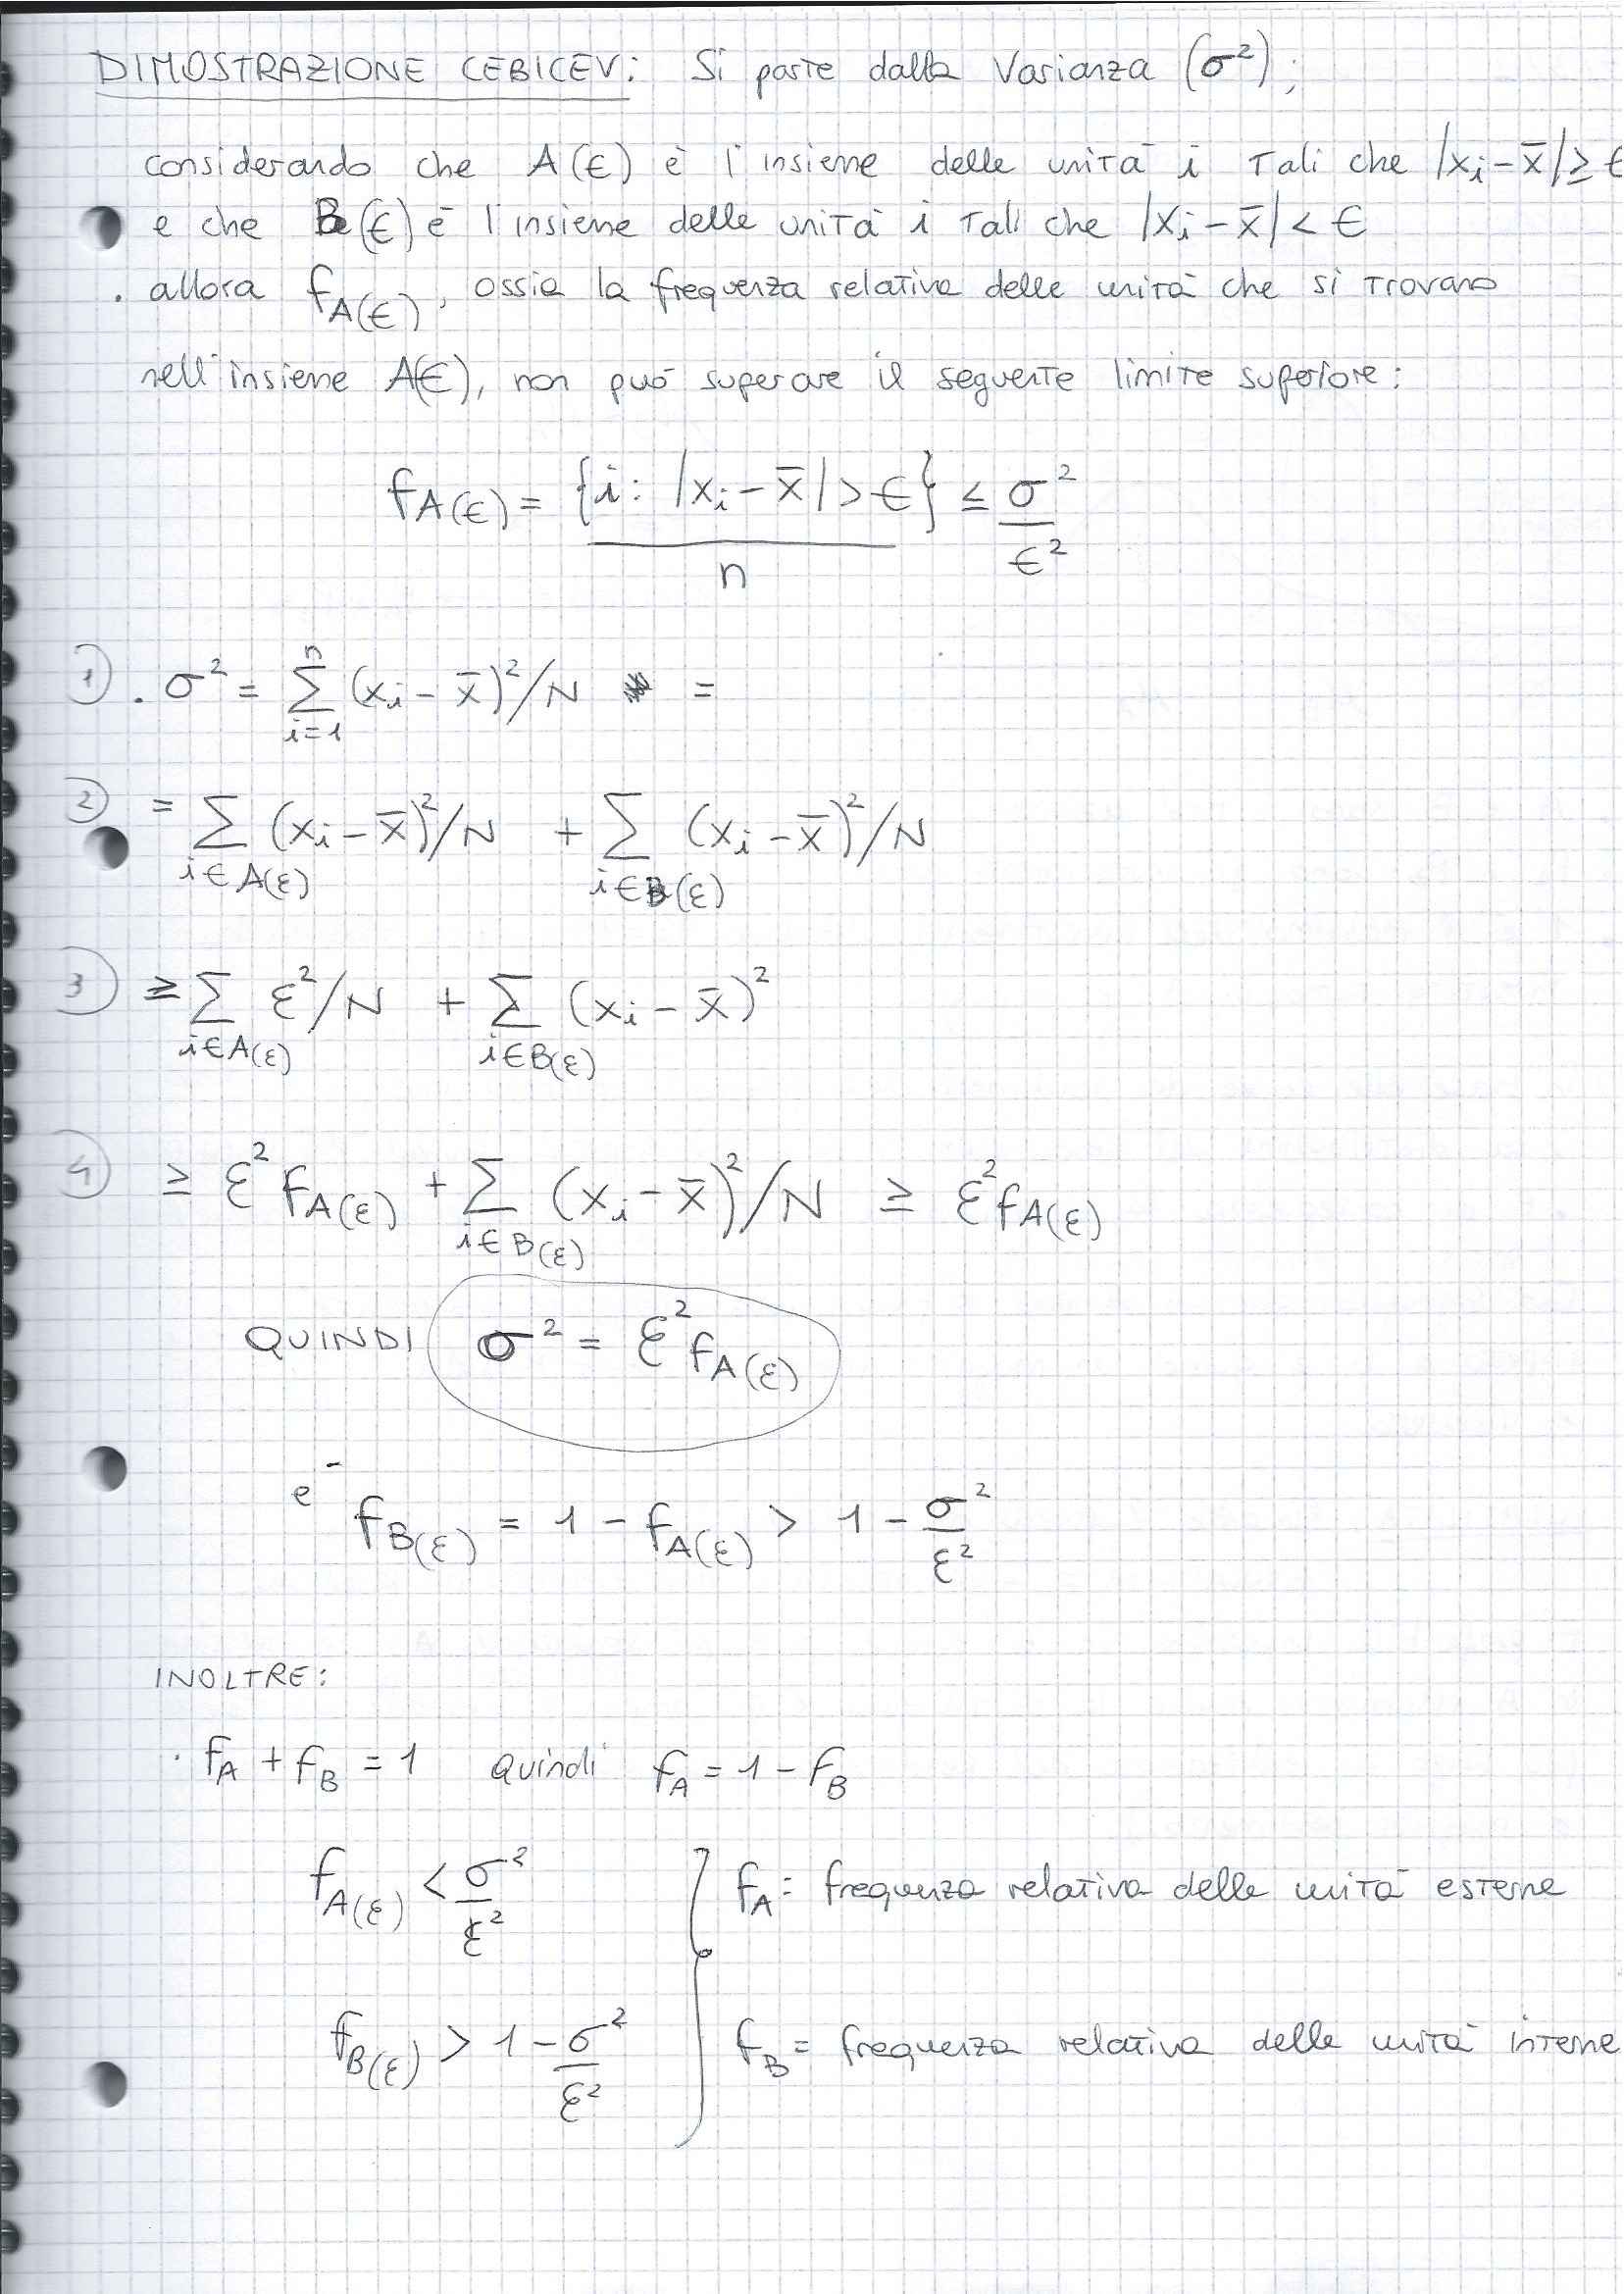 DIMOSTRAZIONE CEBICEV: Si parte dalla Varianza (σ²);
considerando che A(ϵ) è l'insieme delle unità i tali che |xᵢ-x̄|≥ϵ
e che B(ϵ) è l'insieme delle unità i tali che |xᵢ-x̄|<ϵ
. allora f_A(ϵ), ossia la frequenza relativa delle unità che si trovano
nell'insieme A(ϵ), non può superare il seguente limite superiore:
f_A(ϵ) = {i: |xᵢ-x̄|>ϵ}/n ≤ σ²/ϵ²
1) . σ² = Σ_{i=1}^{n} (xᵢ-x̄)²/N =
2) = Σ_{i∈A(ε)} (xᵢ-x̄)²/N + Σ_{i∈B(ε)} (xᵢ-x̄)²/N
3) ≥ Σ_{i∈A(ε)} ε²/N + Σ_{i∈B(ε)} (xᵢ-x̄)²
4) ≥ ε² f_A(ε) + Σ_{i∈B(ε)} (xᵢ-x̄)²/N ≥ ε² f_A(ε)
QUINDI σ² = ε² f_A(ε)
e f_B(ε) = 1 - f_A(ε) > 1 - σ²/ε²
INOLTRE:
. f_A + f_B = 1 quindi f_A = 1 - f_B
f_A(ε) < σ²/ε²
f_A: frequenza relativa delle unità esterne
f_B(ε) > 1 - σ²/ε²
f_B = frequenza relativa delle unità interne